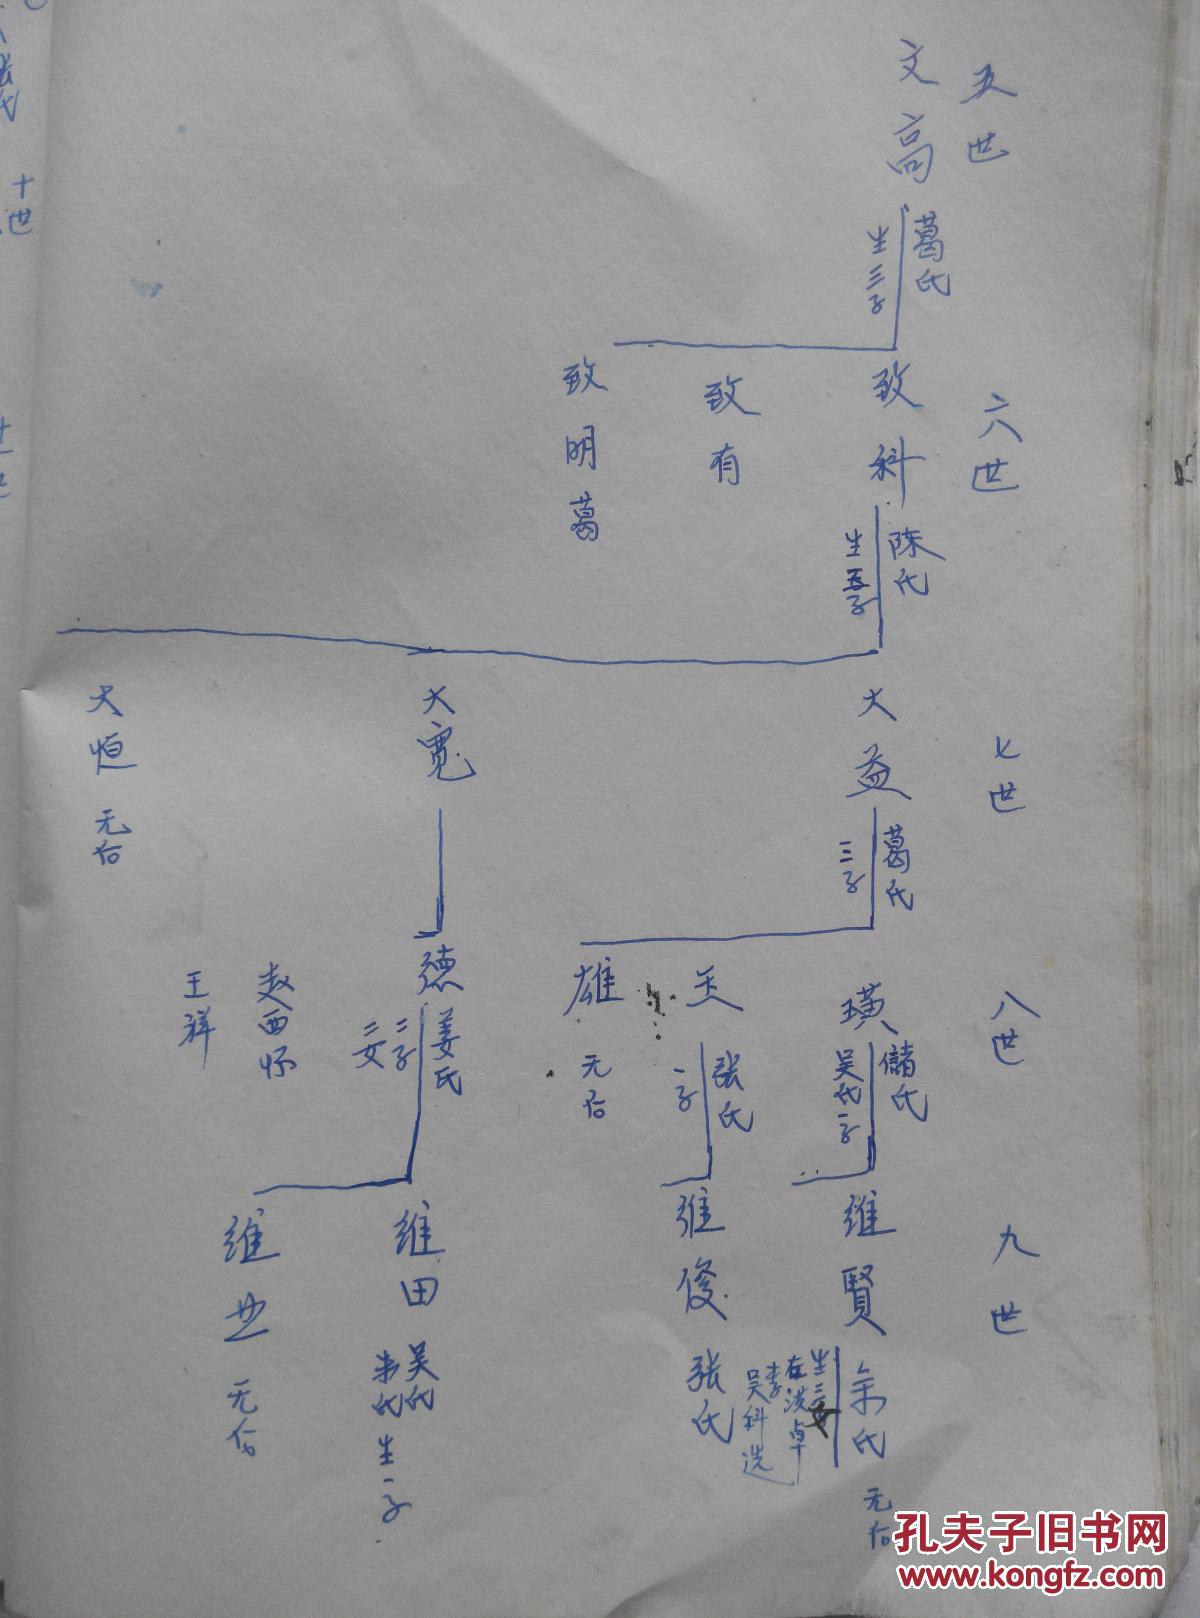 五世
文高
葛氏
生三子
六世
致科
致有
致明葛
陈氏
生五子
七世
大益
大寬
大恒
无后
葛氏
三子
八世
璜
玉
雄
德
赵西怀
王祥
儲氏
吴氏一子
张氏
一子
无后
姜氏
二子
二女
九世
维賢
维俊
维田
维世
余氏
无后
生三女
在波卓
李
吴科选
张氏
吴氏
朱氏生一子
无后
十世
孔夫子旧书网
www.kongfz.com